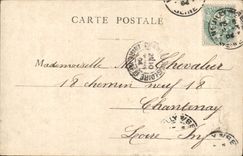 CARTE POSTALE
Mademoiselle M. Chevalier
18 chemin neuf 18
Chantenay
Loire Inf